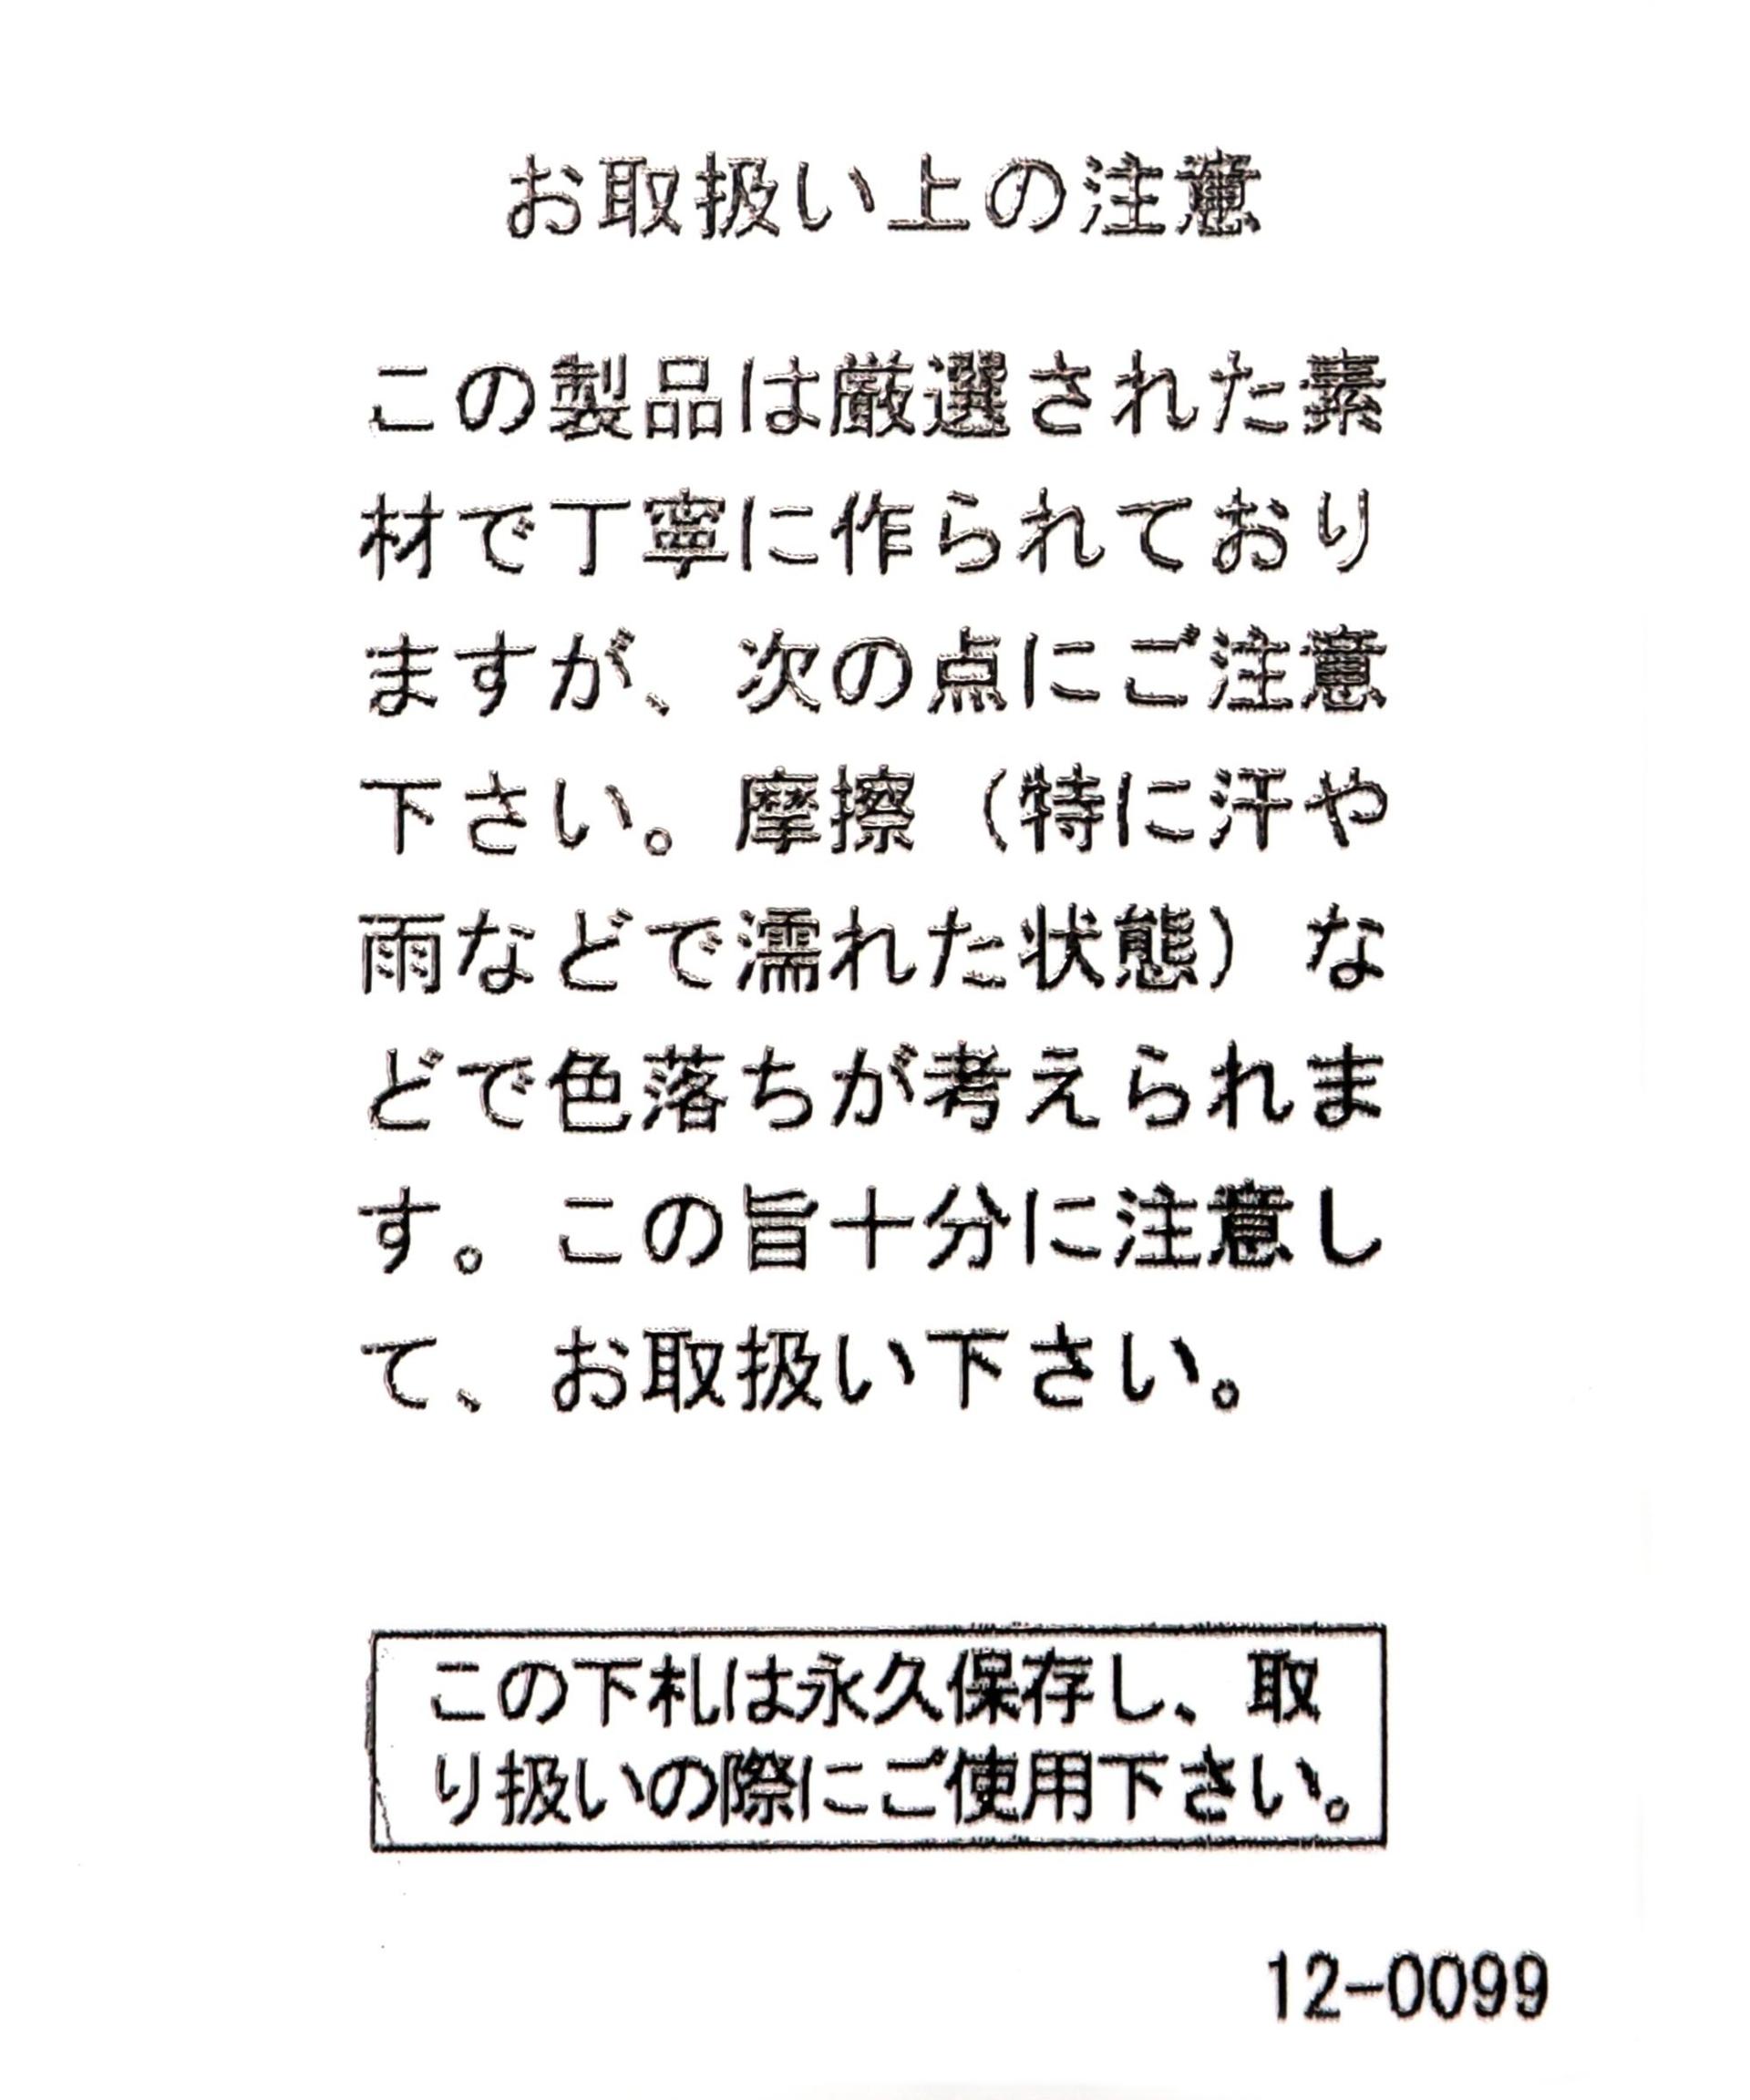 お取扱い上の注意
この製品は厳選された素
材で丁寧に作られており
ますが、次の点にご注意
下さい。摩擦（特に汗や
雨などで濡れた状態）な
どで色落ちが考えられま
す。この旨十分に注意し
て、お取扱い下さい。
この下札は永久保存し、取
り扱いの際にご使用下さい。
12-0099